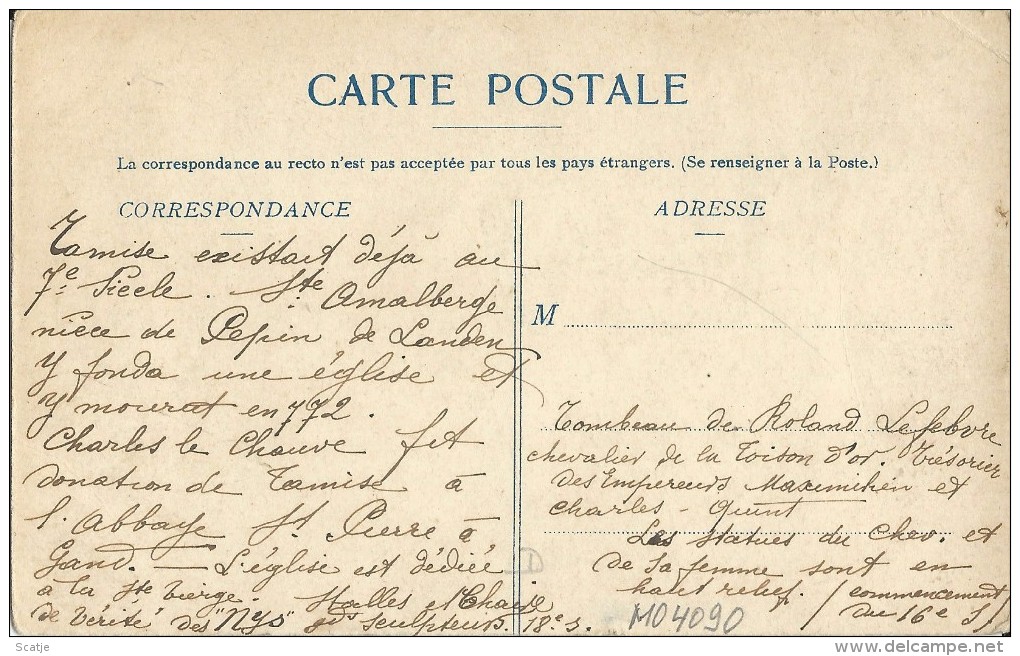 CARTE POSTALE
La correspondance au recto n'est pas acceptée par tous les pays étrangers. (Se renseigner à la Poste.)
CORRESPONDANCE
Tamise existait déjà au
7e Siècle. Ste Amalberge
nièce de Pepin de Landen
y fonda une église et
y mourut en 772.
Charles le Chauve fit
donation de Tamise à
l'Abbaye St Pierre à
Gand. — L'église est dédiée
à la Ste Vierge. Stalles et Chaire
de Vérité des "Nys" gds sculpteurs. 18e s.
ADRESSE
M
Tombeau de Roland Lefebvre
chevalier de la Toison d'or. Trésorier
des Empereurs Maximilien et
Charles-Quint
Les statues du Chev. et
de sa femme sont en
haut relief. (commencement
du 16e s)
MO4090
Scatje
delcampe.net